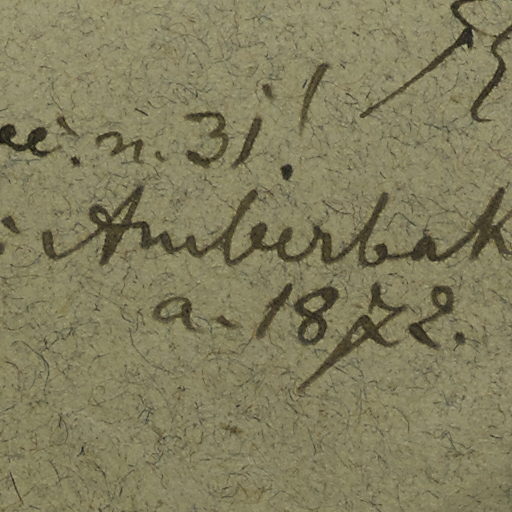 n. 31!
Amberbak
a. 1872.